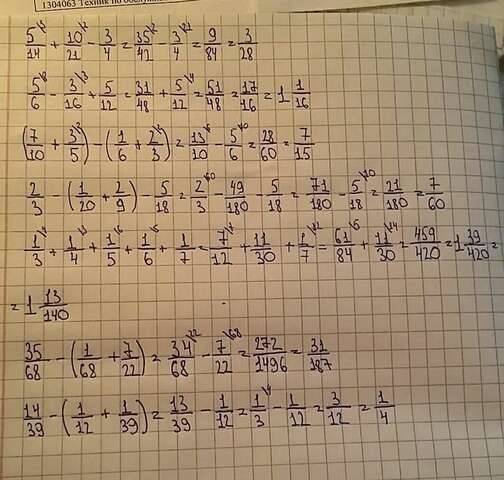 1304063 Техник по обслу
5/14 + 10/21 - 3/4 = 35/42 - 3/4 = 9/84 = 3/28
5/6 - 3/16 + 5/12 = 31/48 + 5/12 = 51/48 = 17/16 = 1 1/16
(7/10 + 3/5) - (1/6 + 2/3) = 13/10 - 5/6 = 28/60 = 7/15
2/3 - (1/20 + 2/9) - 5/18 = 2/3 - 49/180 - 5/18 = 71/180 - 5/18 = 21/180 = 7/60
1/3 + 1/4 + 1/5 + 1/6 + 1/7 = 7/12 + 11/30 + 1/7 = 61/84 + 11/30 = 459/420 = 1 39/420 =
= 1 13/140
35/68 - (1/68 + 7/22) = 34/68 - 7/22 = 272/1496 = 31/187
14/39 - (1/12 + 1/39) = 13/39 - 1/12 = 1/3 - 1/12 = 3/12 = 1/4